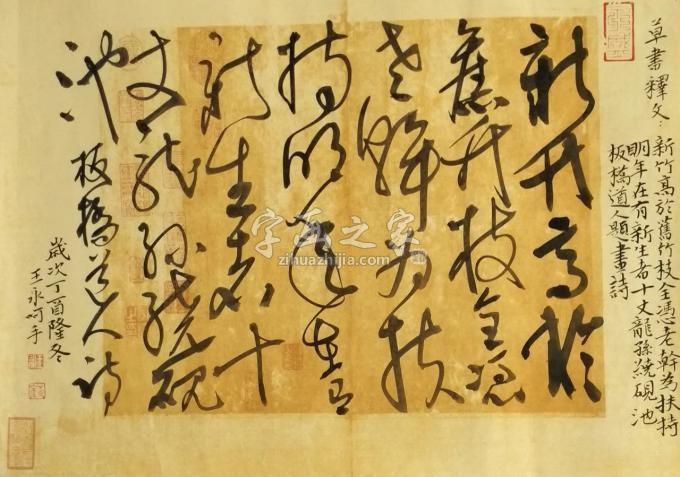 草書釋文：
新竹高於舊竹枝全憑老幹為扶持
明年在有新生者十丈龍孫繞硯池
板橋道人題畫詩
新竹高於
舊竹枝全憑
老幹為扶
持明年在有
新生者十
丈龍孫繞硯
池 板橋道人詩
歲次丁酉隆冬
王永呵手
字画之家
zihuazhijia.com